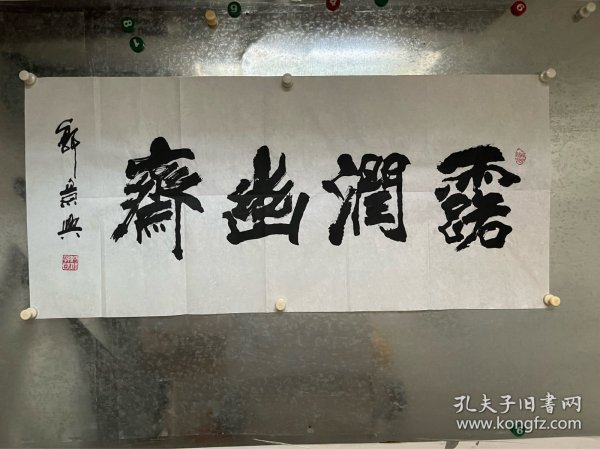 露潤幽齋
郭景興
孔夫子旧书网
www.kongfz.com